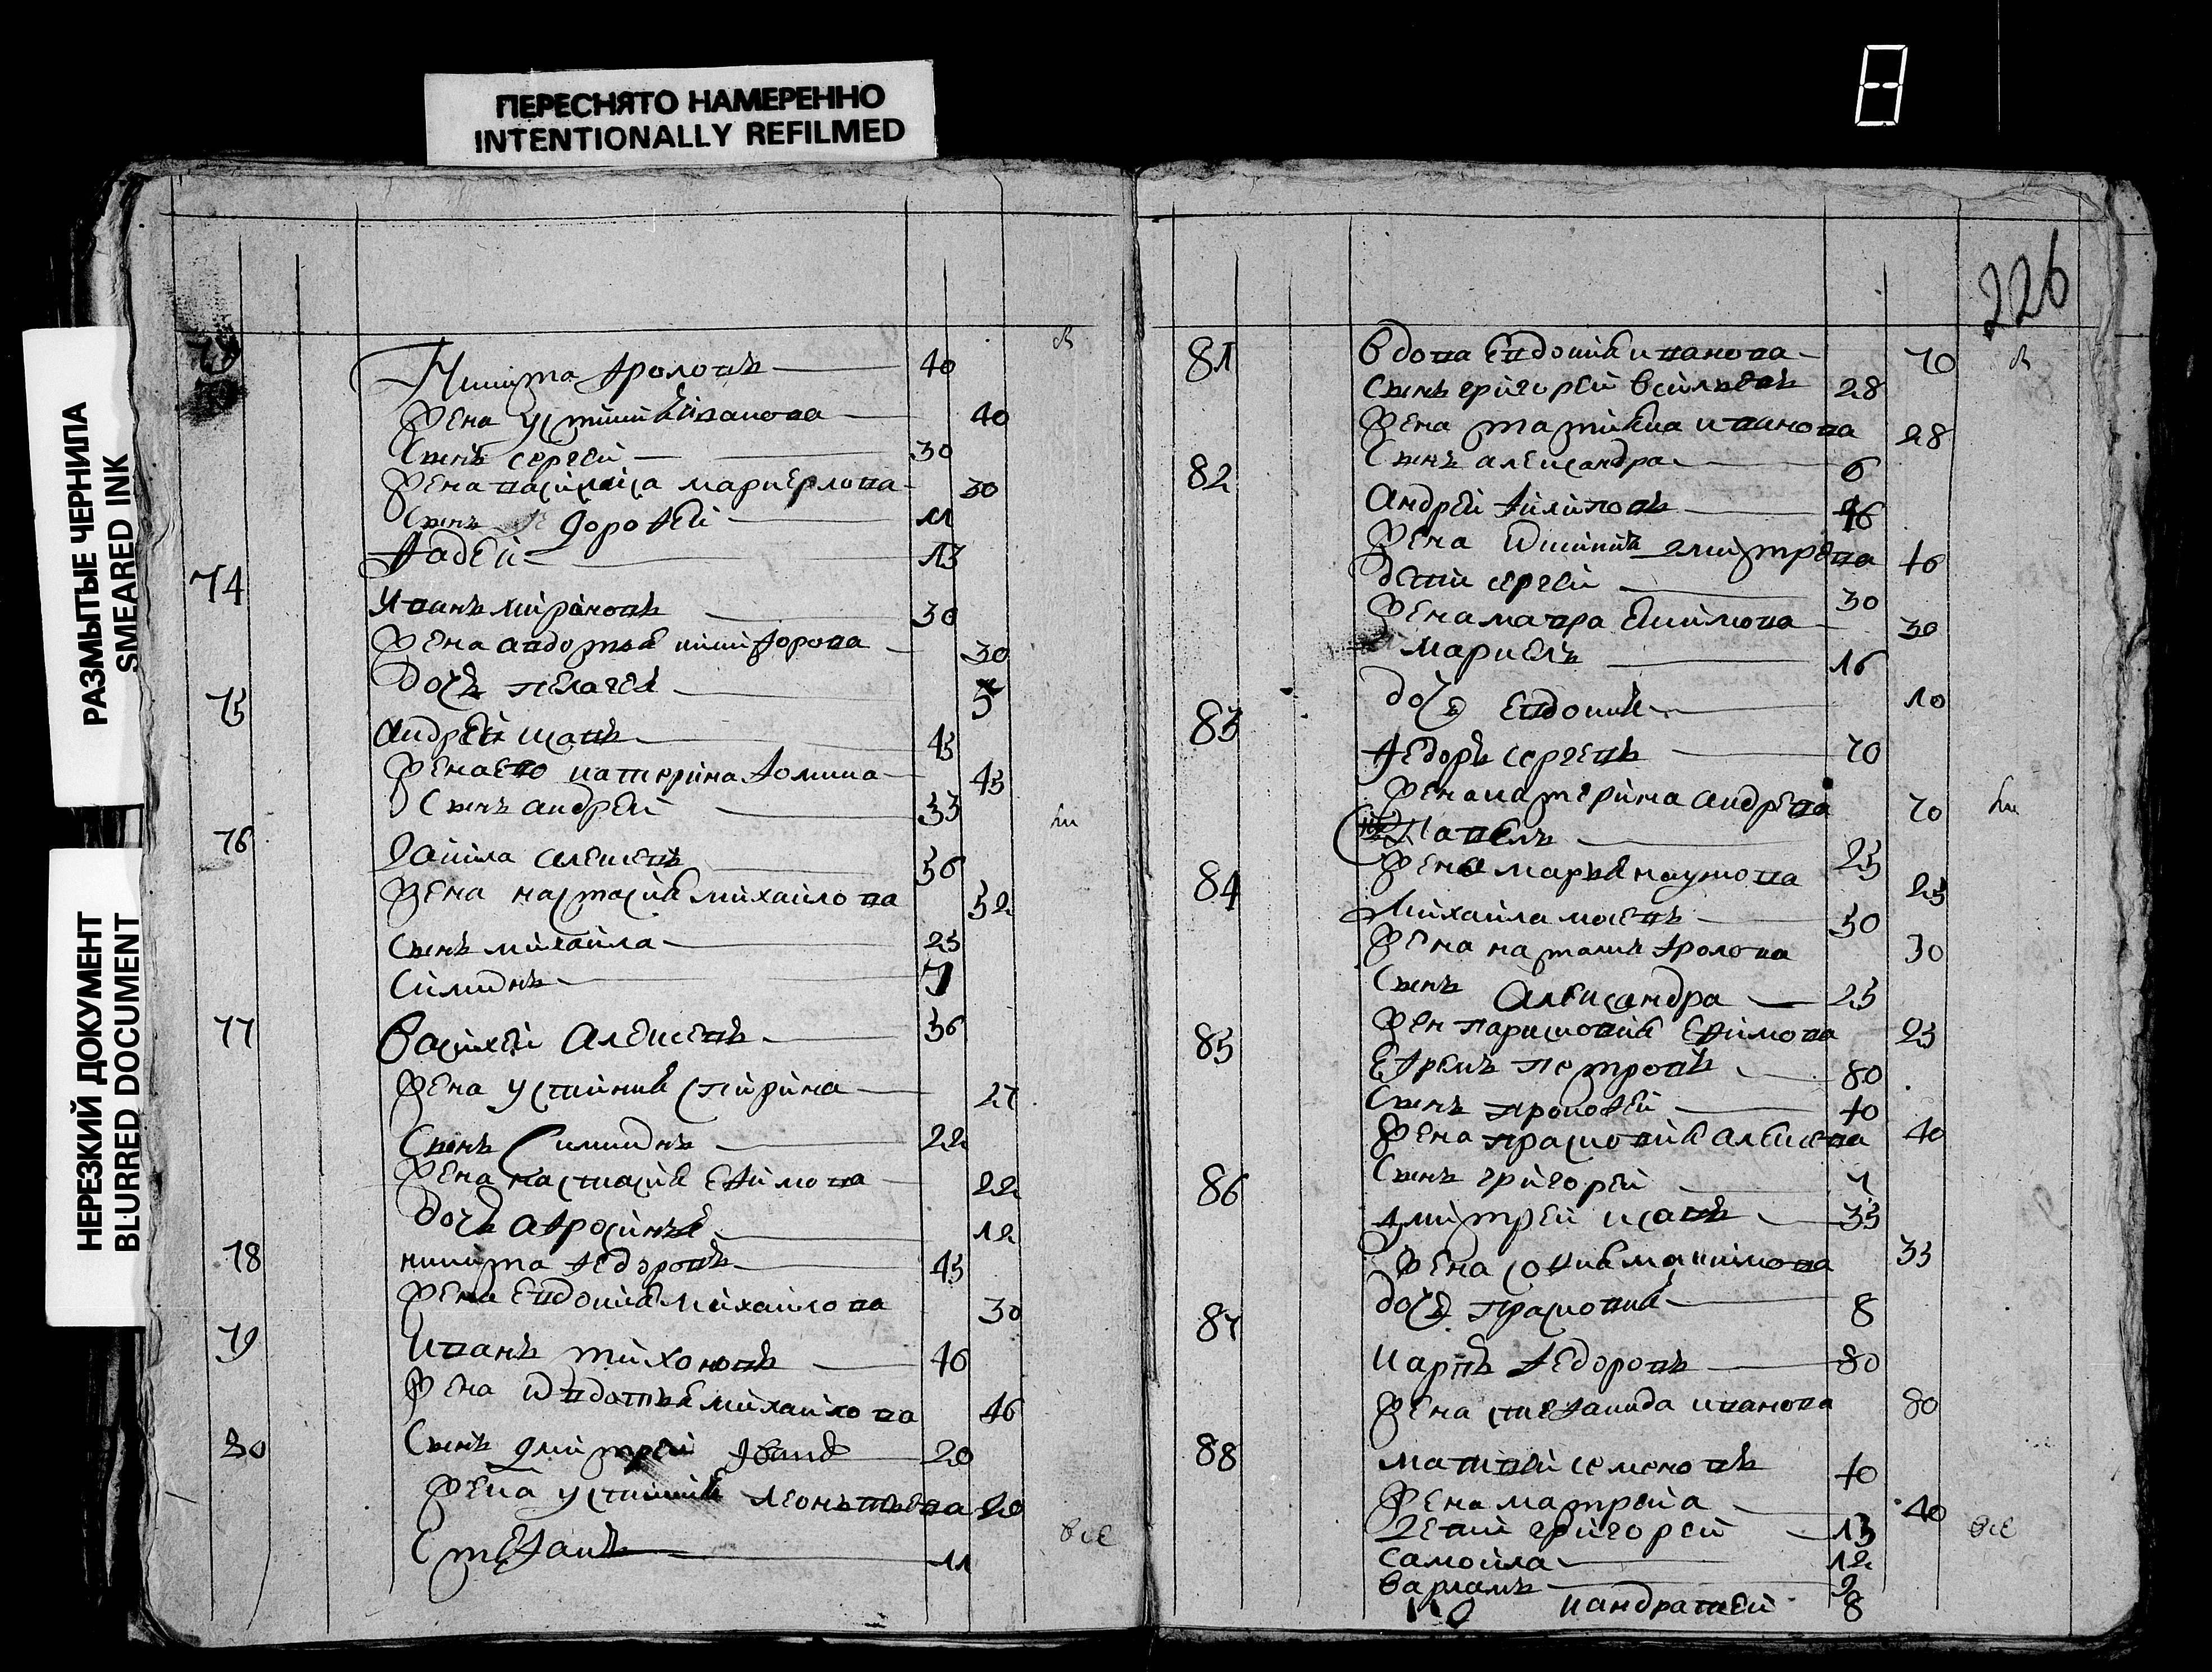 ПЕРЕСНЯТО НАМЕРЕННО
INTENTIONALLY REFILMED
РАЗМЫТЫЕ ЧЕРНИЛА
SMEARED INK
НЕРЕЗКИЙ ДОКУМЕНТ
BLURRED DOCUMENT
Никита Фроловъ 40
Жена Устинья Иванова 40
Сынъ Сергей 30
Жена Василиса 30
Сынъ Дорофей 11
Фадей 13
74
Иванъ Мироновъ 30
Жена Авдотья Никифорова 30
Дочь Пелагея 5
75
Андрей Исаевъ 45
Жена ево Катерина Фомина 45
Сынъ Андрей 33
76
Данила Алексеевъ 56
Жена Настасия Михайлова 52
Сынъ Михайла 25
77
Василей Алексеевъ 36
Жена Устиния Спирина 27
Сынъ 22
Жена Настасия Ефимова 22
Дочь Афросинья 12
78
Никита Федоровъ 45
Жена Евдокия Михайлова 30
79
Иванъ Тихоновъ 46
Жена Михайлова 46
80
Сынъ Дмитрей 20
Жена Устиния Леонтьева 20
Стефанъ 11
все
226
81
Вдова Евдокия Иванова 70
Сынъ Григорей Васильевъ 28
Жена Татияна Иванова 28
Сынъ Александра 6
82
Андрей Филиповъ 46
Жена Дмитрева 46
Дети Сергей 30
Жена Мавра Екимова 30
16
Дочь Евдокия 10
83
Федоръ Сергеевъ 70
Жена Катерина Андрева 70
Павелъ 25
Жена Марья Наумова 25
84
Михайла Мосеевъ 50
Жена Наталия Фролова 30
Сынъ Александра 25
Жен Парасковия Ефимова 25
85
Ефремъ Петровъ 80
Сынъ Прокофей 40
Жена Прасковия Алексева 40
Сынъ Григорей
86
Дмитрей Исаевъ 33
Жена София Макимова 33
Дочь Прасковия 8
87
Карпъ Федоровъ 80
Жена Стефанида Иванова 80
88
Матвей Семеновъ 40
Жена Матрена 40
Дети Григорей 13
Самойла 12
Варламъ 9
Кандратей 8
все